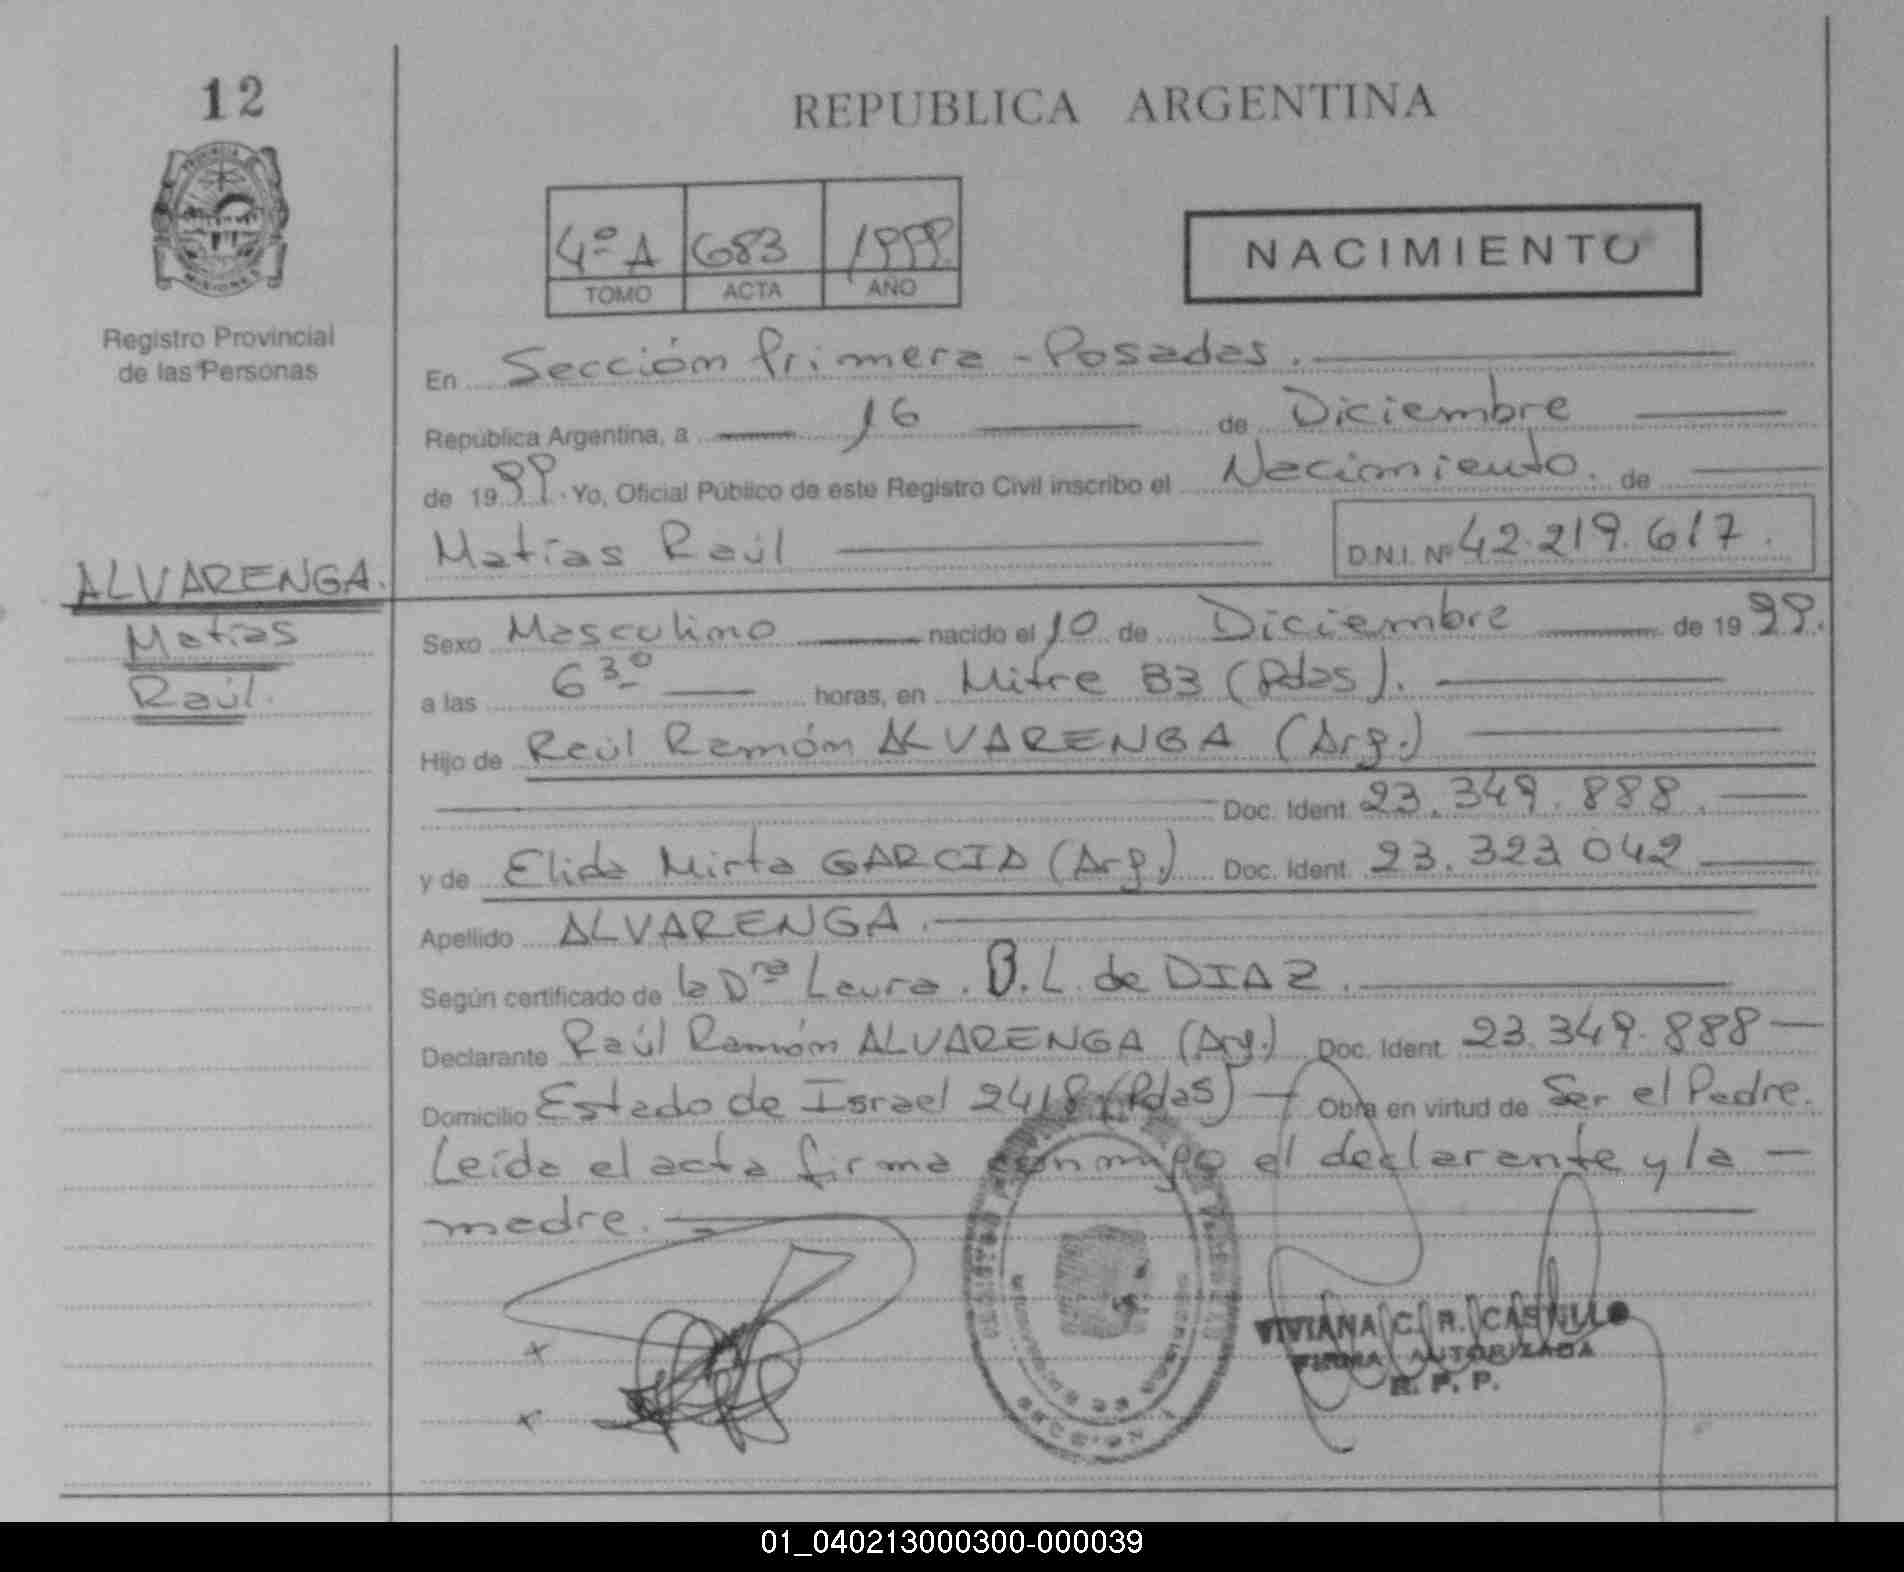 12
REPUBLICA ARGENTINA
4º A 683 1999
TOMO ACTA AÑO
NACIMIENTO
PROVINCIA
MISIONES
Registro Provincial
de las Personas
En Sección Primera - Posadas.
República Argentina, a 16 de Diciembre
de 1999. Yo, Oficial Público de este Registro Civil inscribo el Nacimiento. de
Matías Raúl D.N.I. Nº 42.219.617.
ALVARENGA.
Matías
Raúl.
Sexo Masculino nacido el 10 de Diciembre de 1999.
a las 6 3º horas, en Mitre 83 (Pdas).
Hijo de Raúl Ramón ALVARENGA (Arg.)
Doc. Ident. 23.349.888.
y de Elida Mirta GARCIA (Arg.) Doc. Ident. 23.323.042
Apellido ALVARENGA.
Según certificado de la Dra Laura. B. L. de DIAZ.
Declarante Raúl Ramón ALVARENGA (Arg.) Doc. Ident. 23.349.888
Domicilio Estado de Israel 2418 (Pdas) Obra en virtud de Ser el Padre.
Leída el acta firma conmigo el declarante y la
madre.
VIVIANA C. R. CASTILLO
FIRMA AUTORIZADA
R. P. P.
01_040213000300-000039